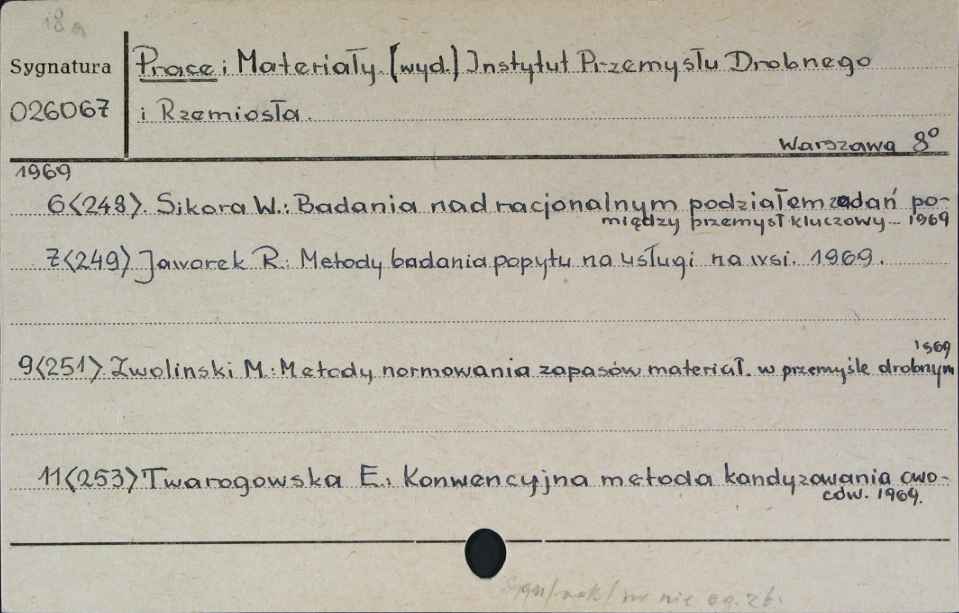 18a
Sygnatura
026067
Prace i Materiały. [wyd.] Instytut Przemysłu Drobnego
i Rzemiosła.
Warszawa 8°
1969
6<248>. Sikora W.: Badania nad racjonalnym podziałem zadań po-
między przemysł kluczowy... 1969
7<249> Jaworek R.: Metody badania popytu na usługi na wsi. 1969.
1969
9<251> Zwolinski M.: Metody normowania zapasów materiał. w przemyśle drobnym
11<253> Twarogowska E.: Konwencyjna metoda kandyzowania owo-
ców. 1969.
nie